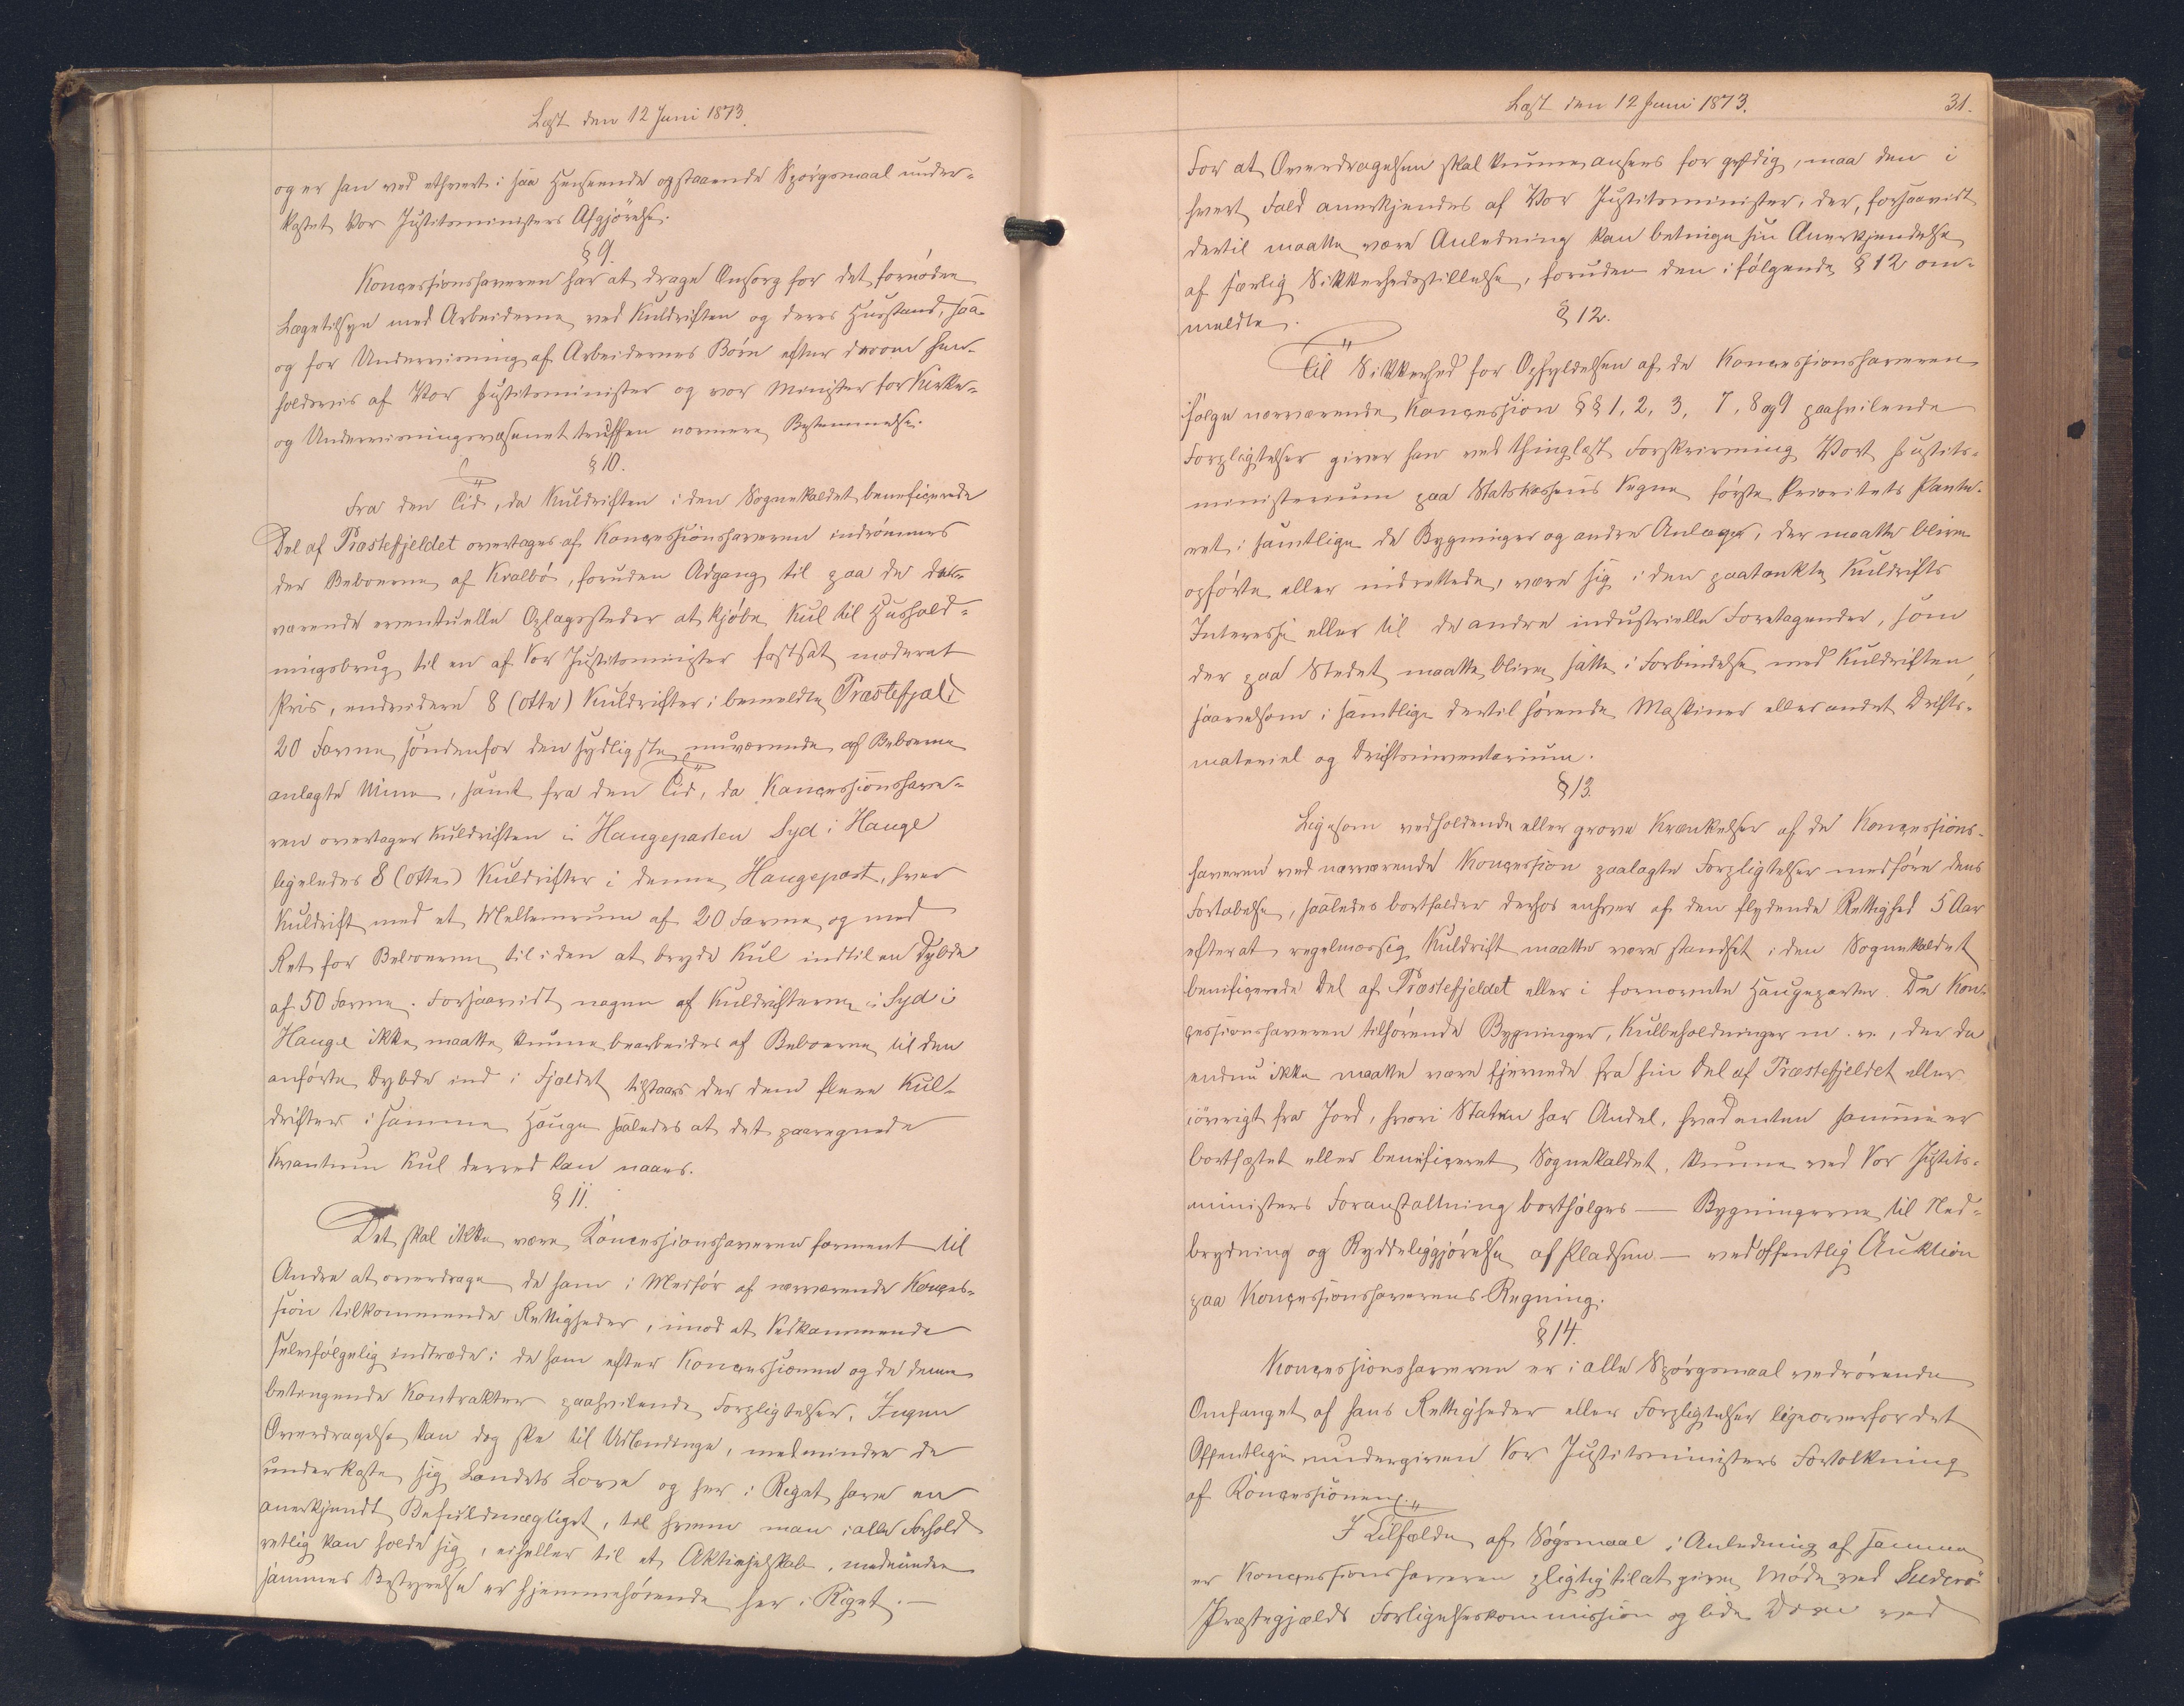 Læst den 12 Juni 1873.
og er han ved ethvert i saa Henseende opstaaende Spörgsmaal under-
kastet Vor Justitsministers Afgjörelse.
§ 9.
Konçessionshaveren har at drage Omsorg for det fornödne
Lægetilsyn med Arbeiderne ved Kuldriften og deres Husstand, saa-
og for Underviisning af Arbeidernes Börn efter derom hen-
holdsvis af Vor Justitsminister og vor Minister for Kirke-
og Underviisningsvæsenet truffen nærmere Bestemmelse.
§ 10.
Fra den Tid, da Kuldriften i den Sognekaldet benefiçerede
Del af Præstefjeldet overtages af Konçessionshaveren indrömmes
der Beboerne af Kvalbö, foruden Adgang til paa de der-
værende eventuelle Oplagssteder at kjöbe Kul til Hushold-
ningsbrug til en af Vor Justitsminister fastsat moderat
Pris, endvidere 8 (otte) Kuldrifter i bemeldte Præstefjæld
20 Favne söndenfor den sydligste nuværende af Beboerne
anlagte Mine, samt fra den Tid, da Konçessionshave-
ren overtager Kuldriften i Haugeparten Syd i Hauge
ligeledes 8 (otte) Kuldrifter i denne Haugepart, hver
Kuldrift med et Mellemrum af 20 Favne og med
Ret for Beboerne til i den at bryde Kul indtil en Dybde
af 50 Favne. Forsaavidt nogen af Kuldrifterne i Syd i
Hauge ikke maatte kunne bearbeides af Beboerne til den
anförte Dybde ind i Fjeldet tilstaaes der dem flere Kul-
drifter i samme Hauge saaledes at det paaregnede
Kvantum Kul derved kan naaes.
§ 11.
Det skal ikke være Konçessionshaveren forment til
Andre at overdrage de ham i Medför af nærværende Konçes-
sion tilkommende Rettigheder, imod at Vedkommende
selvfölgelig indtræde i de ham efter Konçessionen og de denne
betingende Kontrakter paahvilende Forpligtelser. Ingen
Overdragelse kan dog ske til Udlændinge, medmindre de
underkaste sig Landets Love og her i Riget have en
anerkjendt Befuldmægtiget, til hvem man i alle Forhold
retlig kan holde sig, eiheller til et Aktieselskab, medmindre
sammes Bestyrelse er hjemmehörende her i Riget.—
Læst den 12 Juni 1873. 31.
For at Overdragelsen skal kunne ansees for gyldig, maa den i
hvert Fald anerkjendes af Vor Justitsminister, der, forsaavidt
dertil maatte være Anledning kan betinge sin Anerkjendelse
af særlig Sikkerhedsstillelse, foruden den i fölgende § 12 om-
meldte. § 12.
Til Sikkerhed for Opfyldelsen af de Konçessionshaveren
ifölge nærværende Konçession §§ 1, 2, 3, 7, 8 og 9 paahvilende
Forpligtelser giver han ved thinglæst Forskrivning Vort Justits-
ministerium paa Statskassens Vegne förste Prioritets Pante-
ret i samtlige de Bygninger og andre Anlæg, der maatte blive
opförte eller indrettede, være sig i den paatænkte Kuldrifts
Interesse eller til de andre industrielle Foretagender, som
der paa Stedet maatte blive satte i Forbindelse med Kuldriften,
saavelsom i samtlige dertil hörende Maskiner eller andet Drifts-
materiel og Driftsinventarium.
§ 13.
Ligesom vedholdende eller grove Krænkelser af de Konçessions-
haveren ved nærværende Konçession paalagte Forpligtelser medföre dens
Fortabelse, saaledes bortfalder derhos enhver af den flydende Rettighed 5 Aar
efterat regelmæssig Kuldrift maatte være standset i den Sognekaldet
benefiçerede Del af Præstefjeldet eller i fornævnte Haugeparter. De Kon-
çessionshaveren tilhörende Bygninger, Kulbeholdninger m. v., der da
endnu ikke maatte være fjernede fra sin Del af Præstefjeldet eller
iövrigt fra Jord, hvori Staten har Andel, hvad enten samme er
bortfæstet eller benefiçeret Sognekaldet, kunne ved Vor Justits-
ministers Foranstaltning bortsælges — Bygningerne til Ned-
brydning og Ryddeliggjörelse af Pladsen — ved offentlig Auktion
paa Konçessionshaverens Regning.
§ 14.
Konçessionshaveren er i alle Spörgsmaal vedrörende
Omfanget af hans Rettigheder eller Forpligtelser ligeoverfor det
Offentlige undergiven Vor Justitsministers Fortolkning
af Konçessionen.
I Tilfælde af Sögsmaal i Anledning af samme
er Konçessionshaveren pligtig til at give Möde ved Suderö
Præstegjælds Forligelseskommission og lide Dom ved